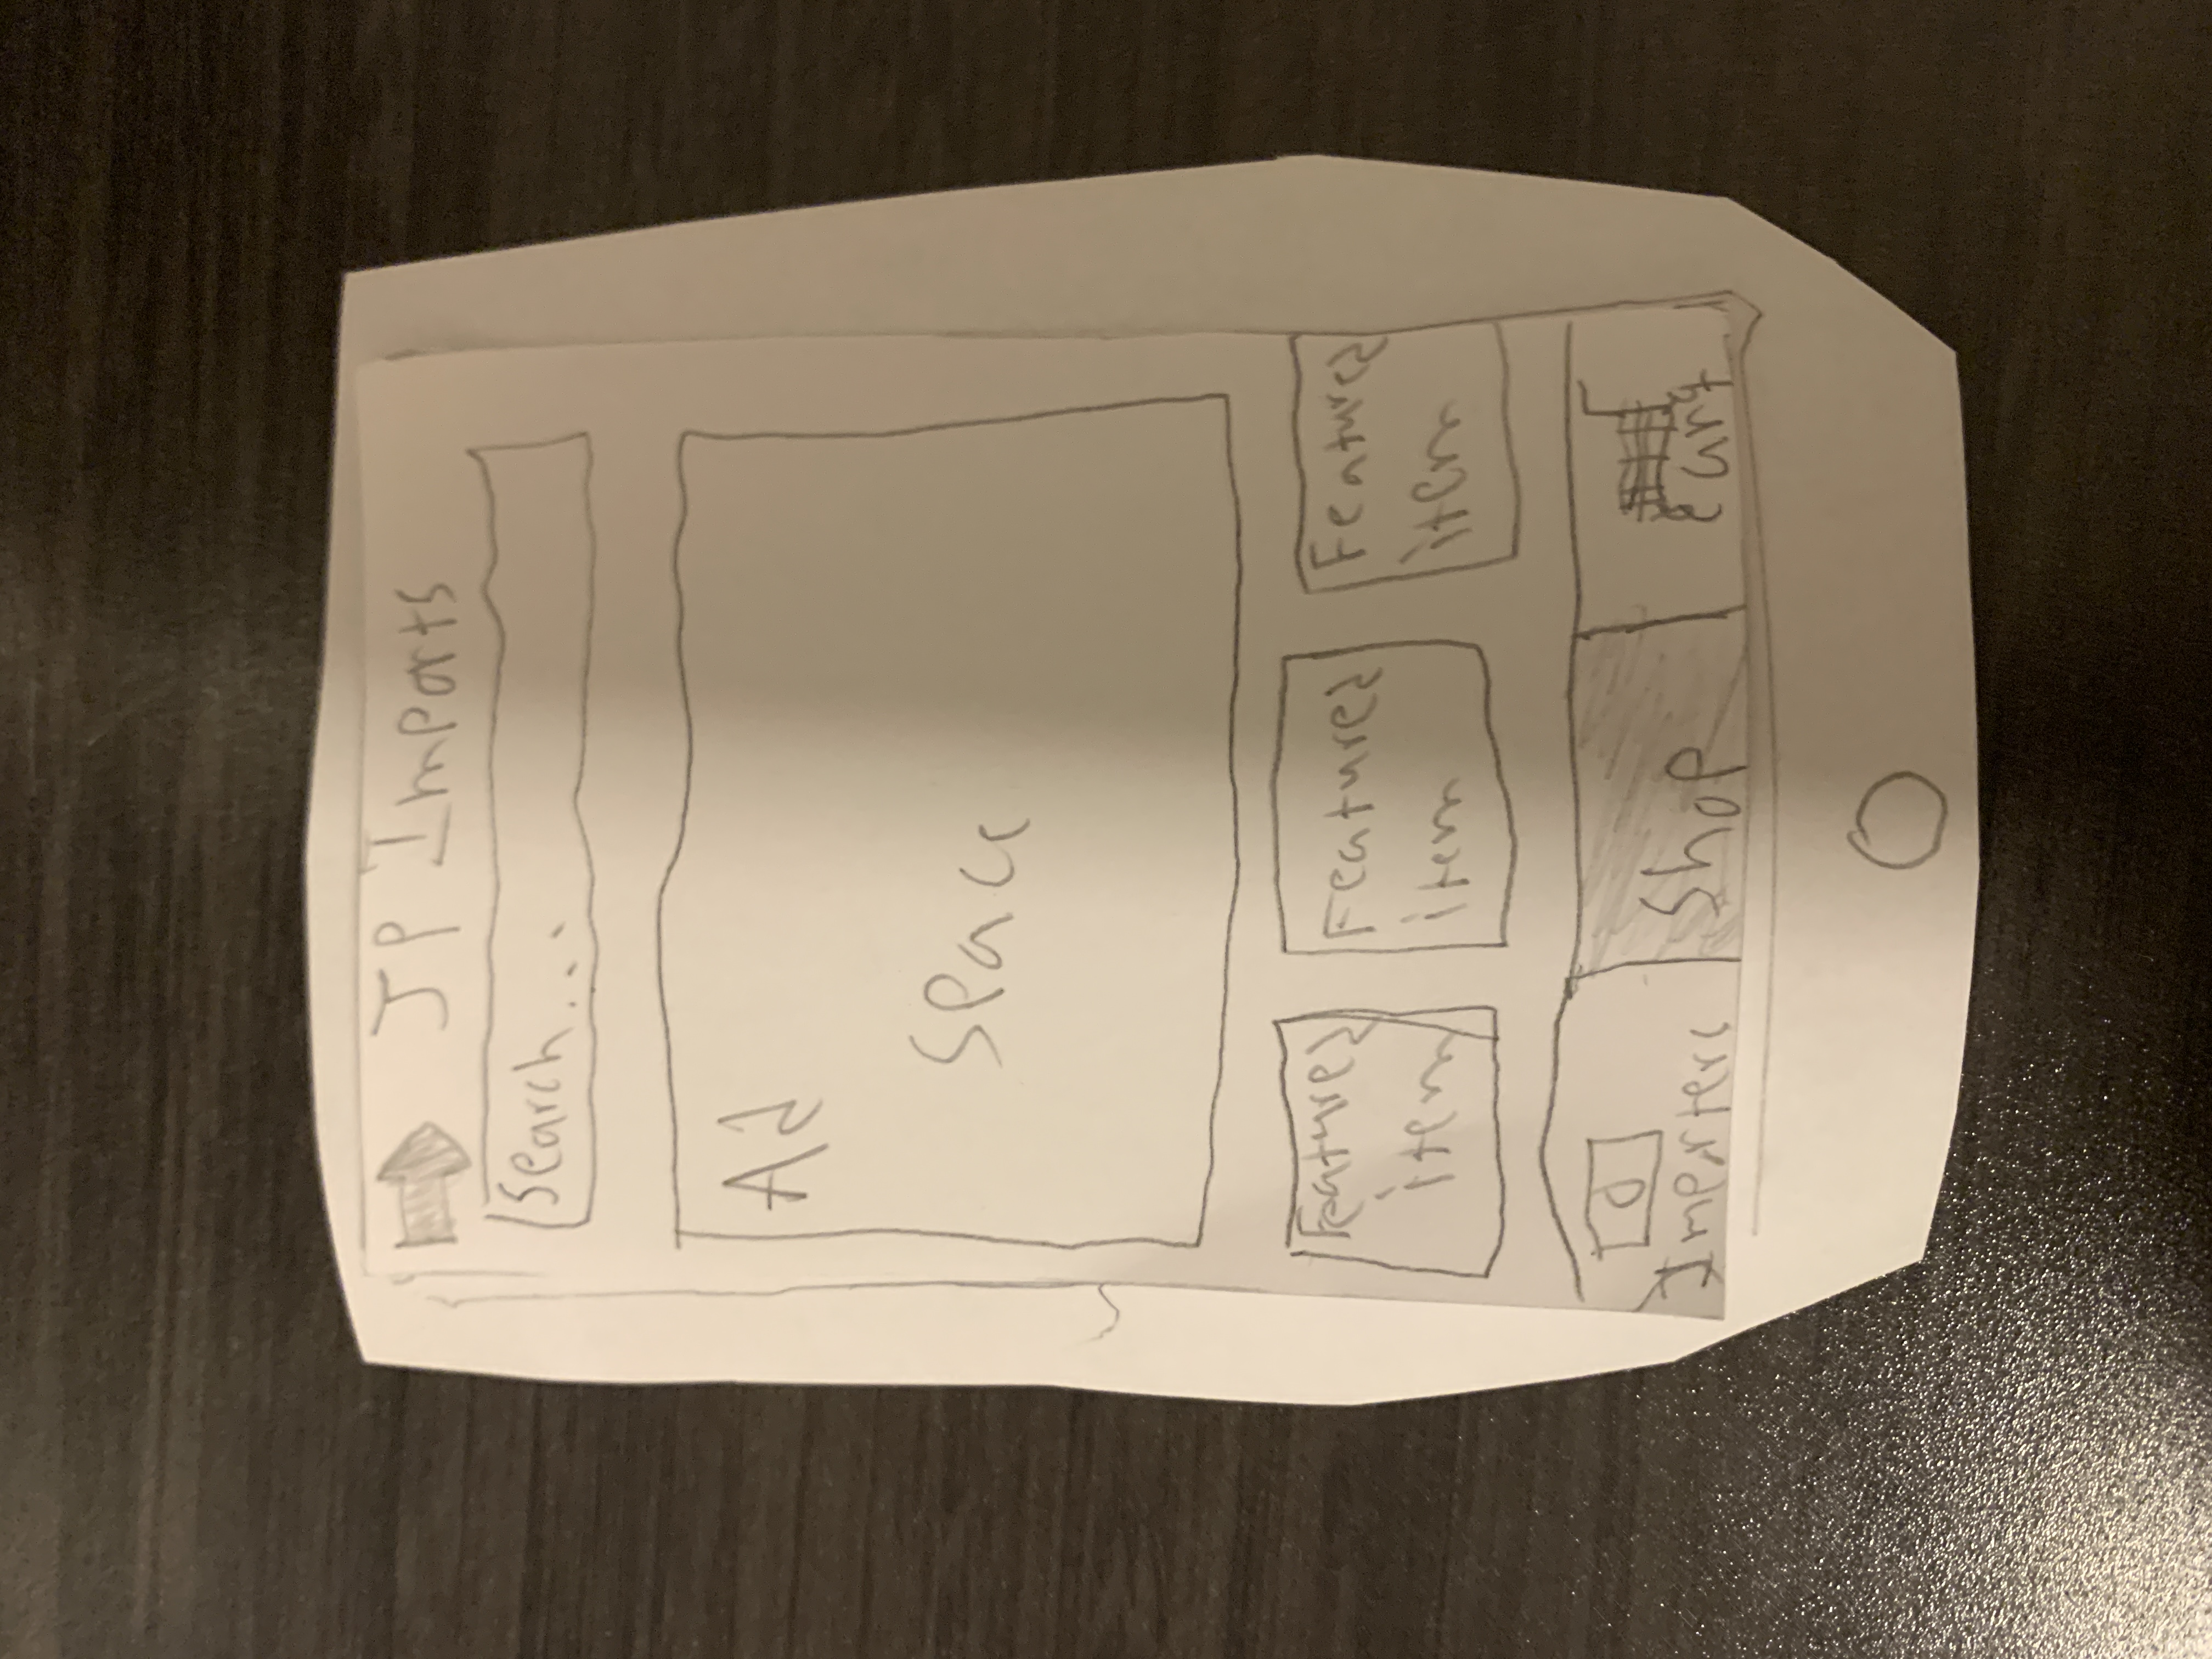 JP Imports
Search...
Ad
Space
Featured item
Featured item
Featured item
Importers
Shop
Cart